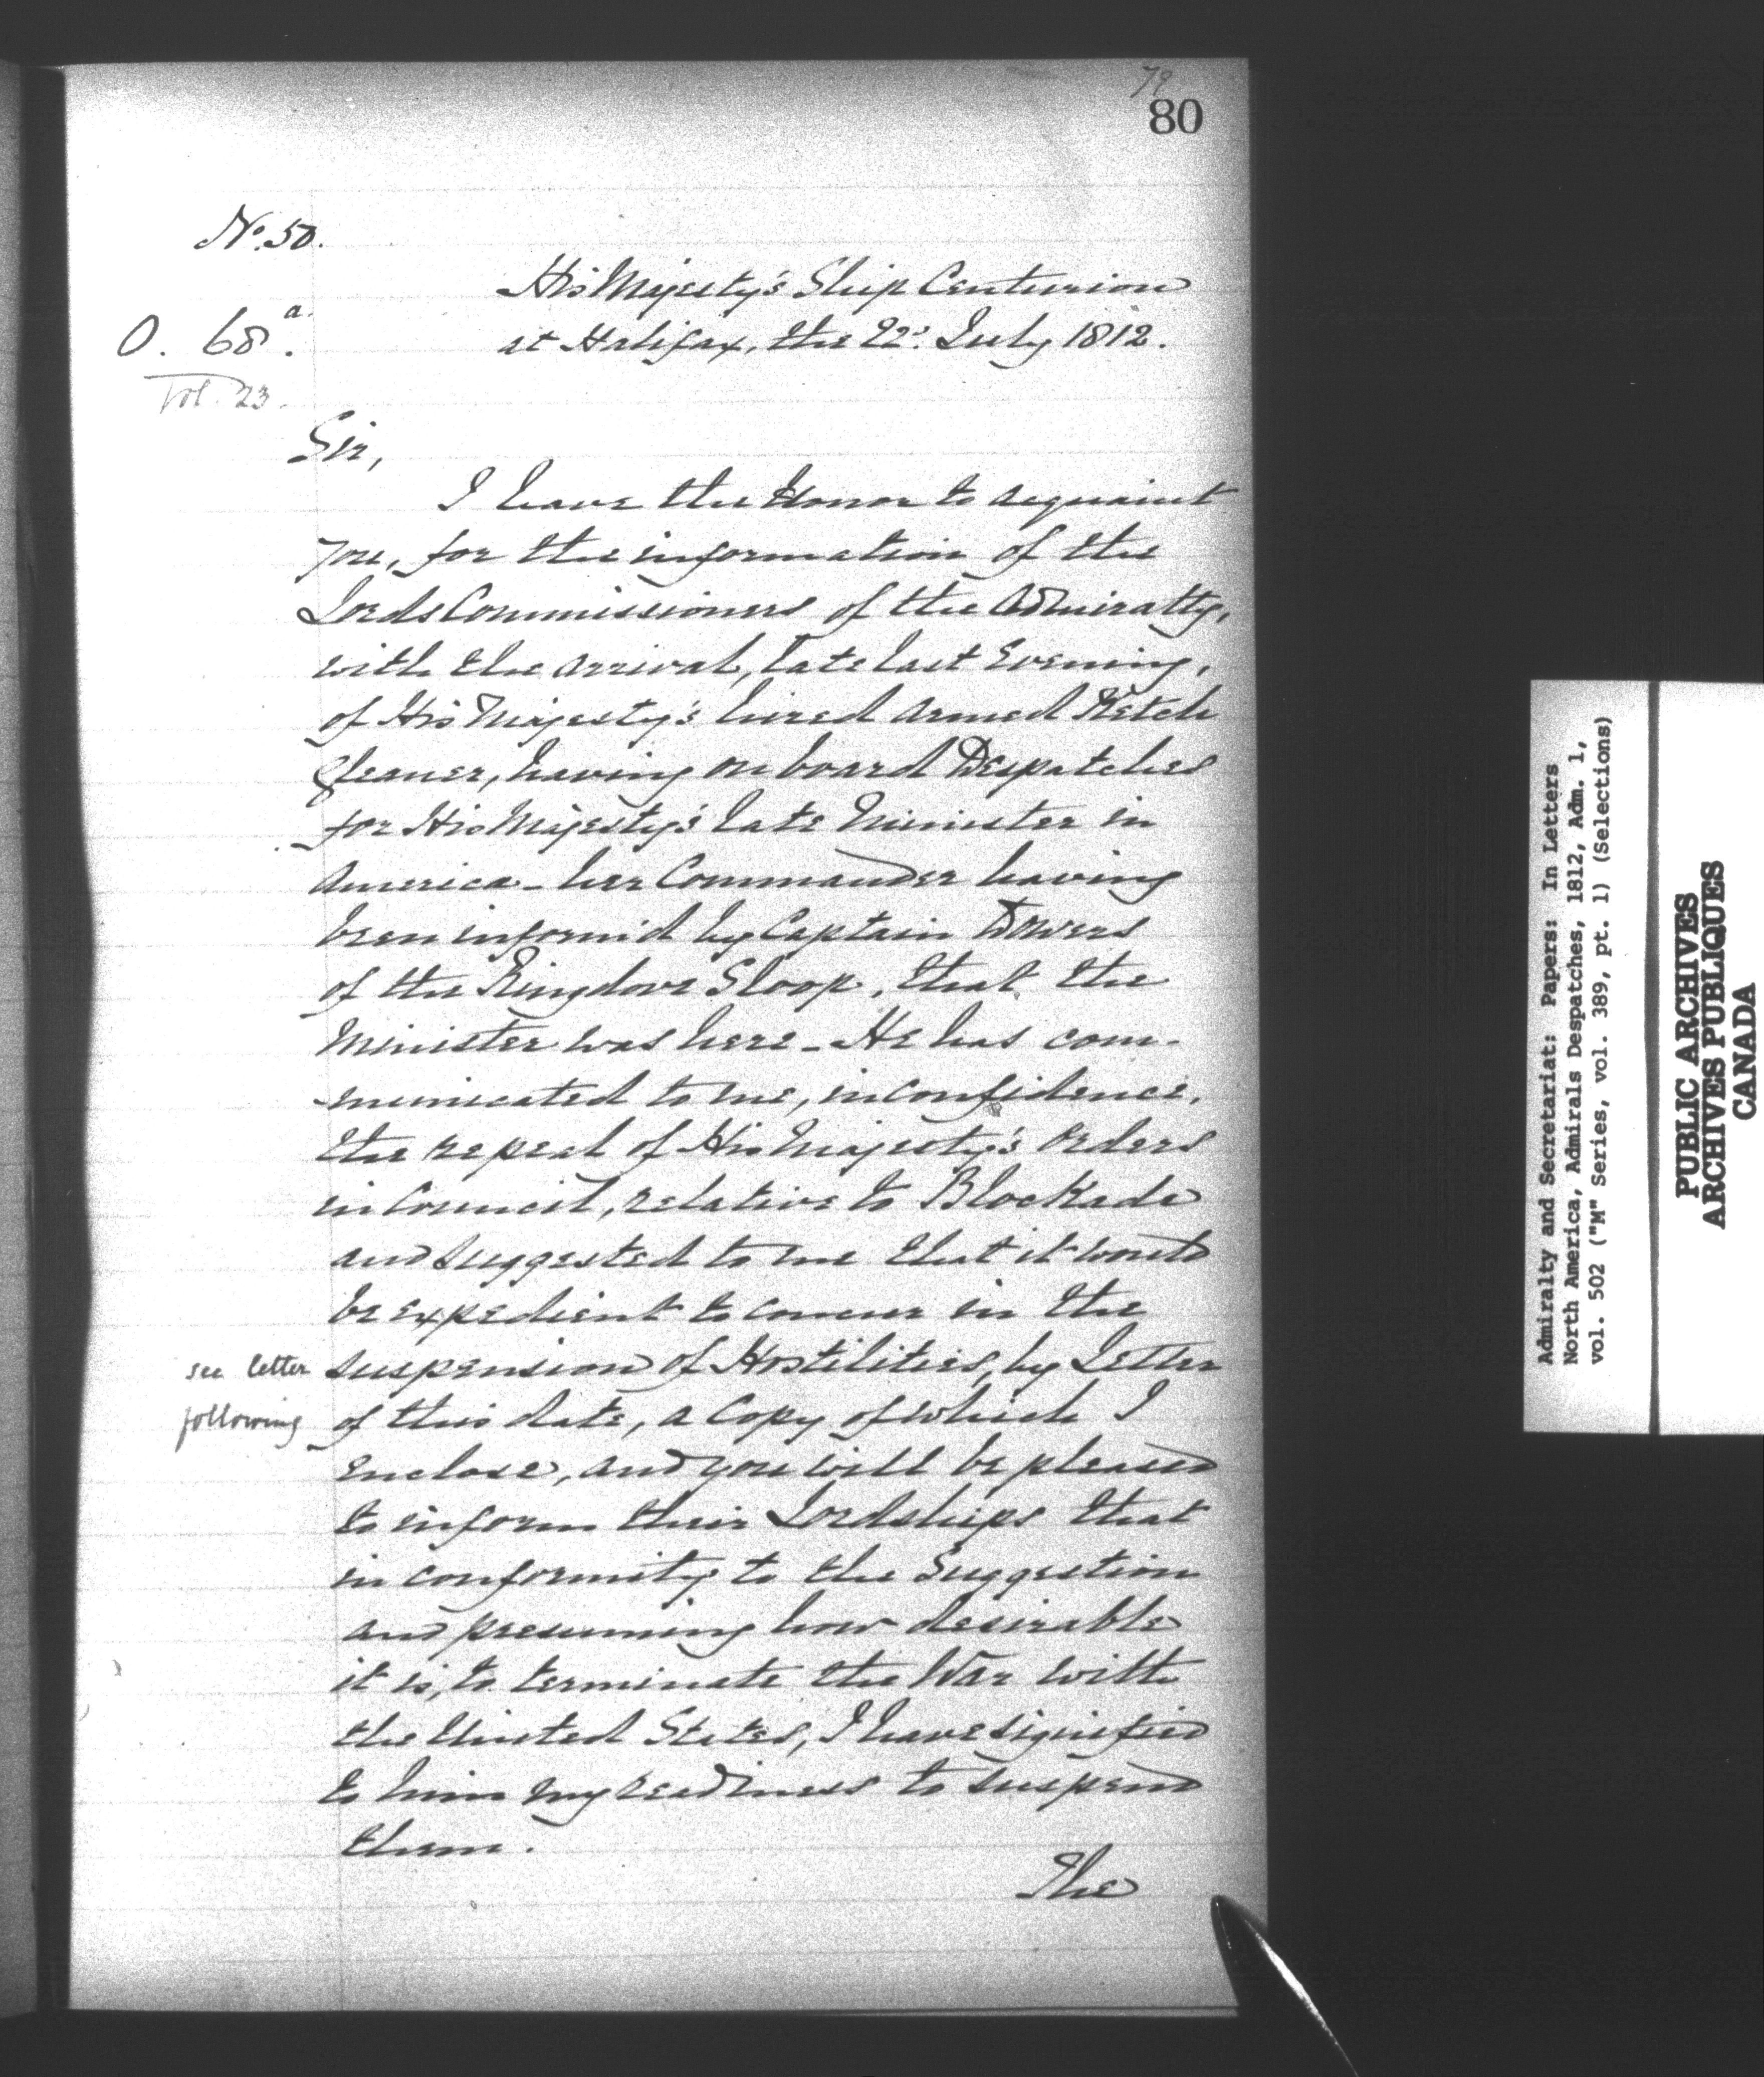 79
80
No. 50.
His Majesty's Ship Centurion
O. 68 a.
at Halifax, the 22d. July 1812.
Vol. 23.
Sir,
I have the Honor to acquaint
you, for the information of the
Lords Commissioners of the Admiralty,
with the arrival, late last Evening,
of His Majesty's hired armed Ketch
Gleaner, having on board Despatches
for His Majesty's late Minister in
America - her Commander having
been inform'd by Captain Dowers
of the Ringdove Sloop, that the
Minister was here - He has com-
-municated to me, in confidence,
the repeal of His Majesty's Orders
in Council, relative to Blockade
and suggested to me that it would
be expedient to concur in the
see letter suspension of Hostilities, by Letter
following of this date, a Copy of which I
enclose, and you will be pleased
to inform their Lordships that
in conformity to the Suggestion
and presuming how desirable
it is, to terminate the War with
the United States, I have signified
to him my readiness to suspend
them.
The
Admiralty and Secretariat: Papers: In Letters
North America, Admirals Despatches, 1812, Adm. 1,
vol. 502 ("M" Series, vol. 389, pt. 1) (Selections)
PUBLIC ARCHIVES
ARCHIVES PUBLIQUES
CANADA